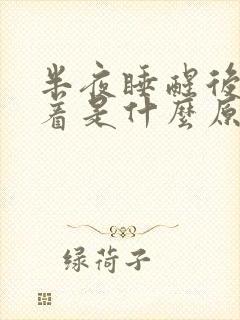 半夜睡醒後
着是什麼原
绿荷子